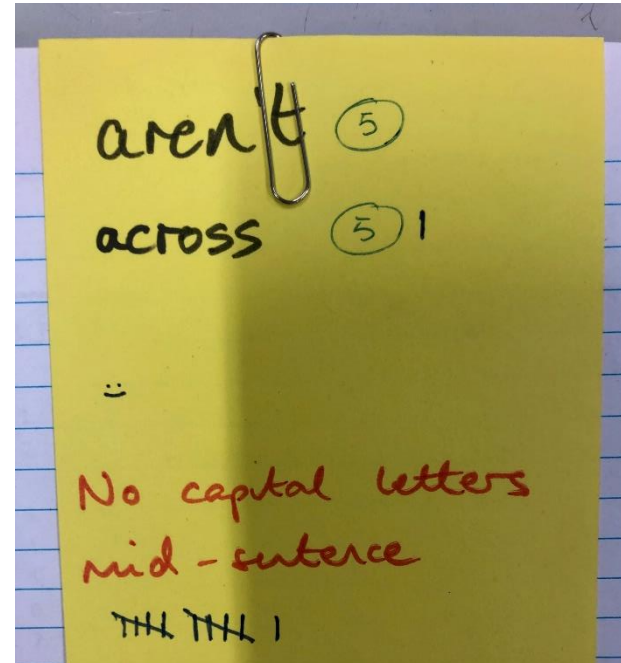 aren't 5
across 5 1
:)
No capital letters
mid-sentence